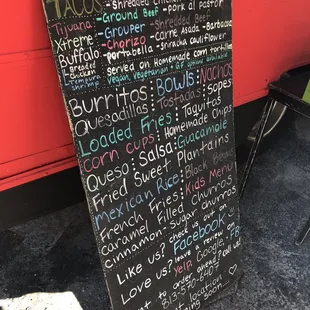 TACOS - Shredded
Tijuana - Ground Beef - pork al pastor
Xtreme - Grouper - Shredded Beef
Buffalo - Chorizo - carne asada - Barbacoa
- Breaded Chicken - portabella - sriracha cauliflower
Tempura shrimp served on Homemade corn tortillas
Vegan, Vegetarian + GF options available
Burritos : BOWLS : Nachos
Quesadillas : Tostadas : Sopes
Loaded Fries : Taquitos
corn cups : Homemade Chips
Queso : Salsa : Guacamole
Fried Sweet Plantains
mexican Rice : Black Beans
French Fries : Kids Menu
caramel Filled Churros
cinnamon-sugar Churros
Like us? check us out on
Facebook
Love us? leave a review on
Yelp, Google, FB
want to order ahead? call us!
813-570-
location
coming soon